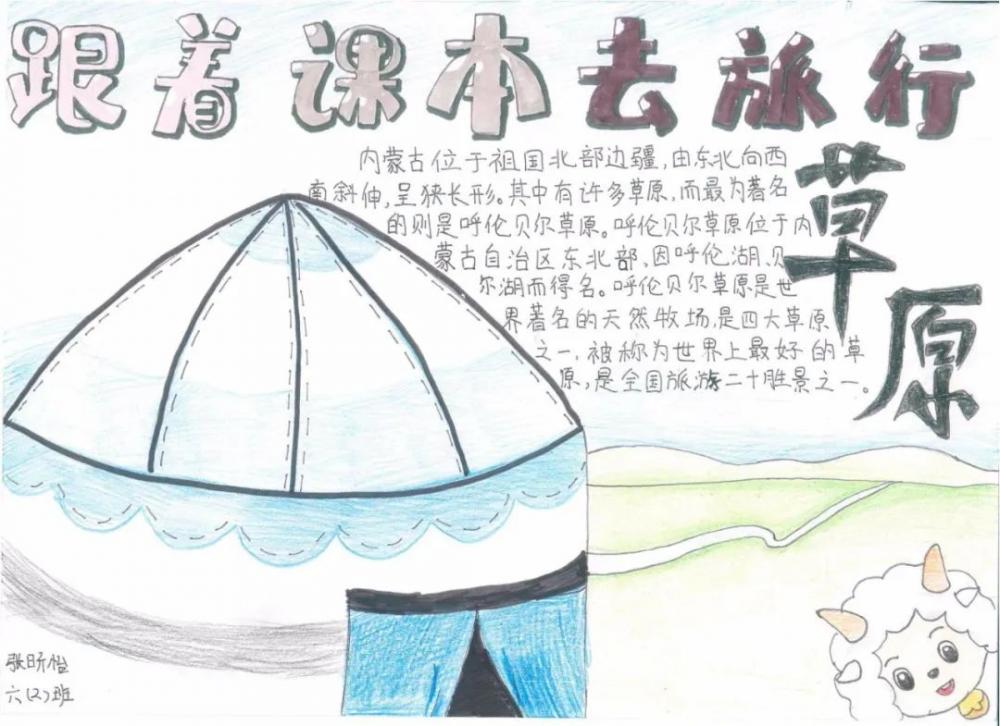 跟着课本去旅行
草原
内蒙古位于祖国北部边疆,由东北向西
南斜伸,呈狭长形。其中有许多草原,而最为著名
的则是呼伦贝尔草原。呼伦贝尔草原位于内
蒙古自治区东北部,因呼伦湖、贝
尔湖而得名。呼伦贝尔草原是世
界著名的天然牧场,是四大草原
之一,被称为世界上最好的草
原,是全国旅游二十胜景之一。
张昕怡
六(2)班